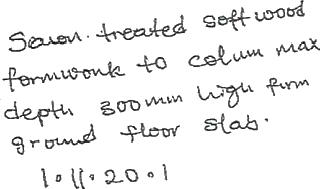 Sawn. treated softwood
formwork to colum max
depth 300mm high from
ground floor slab.
1.11.20.1